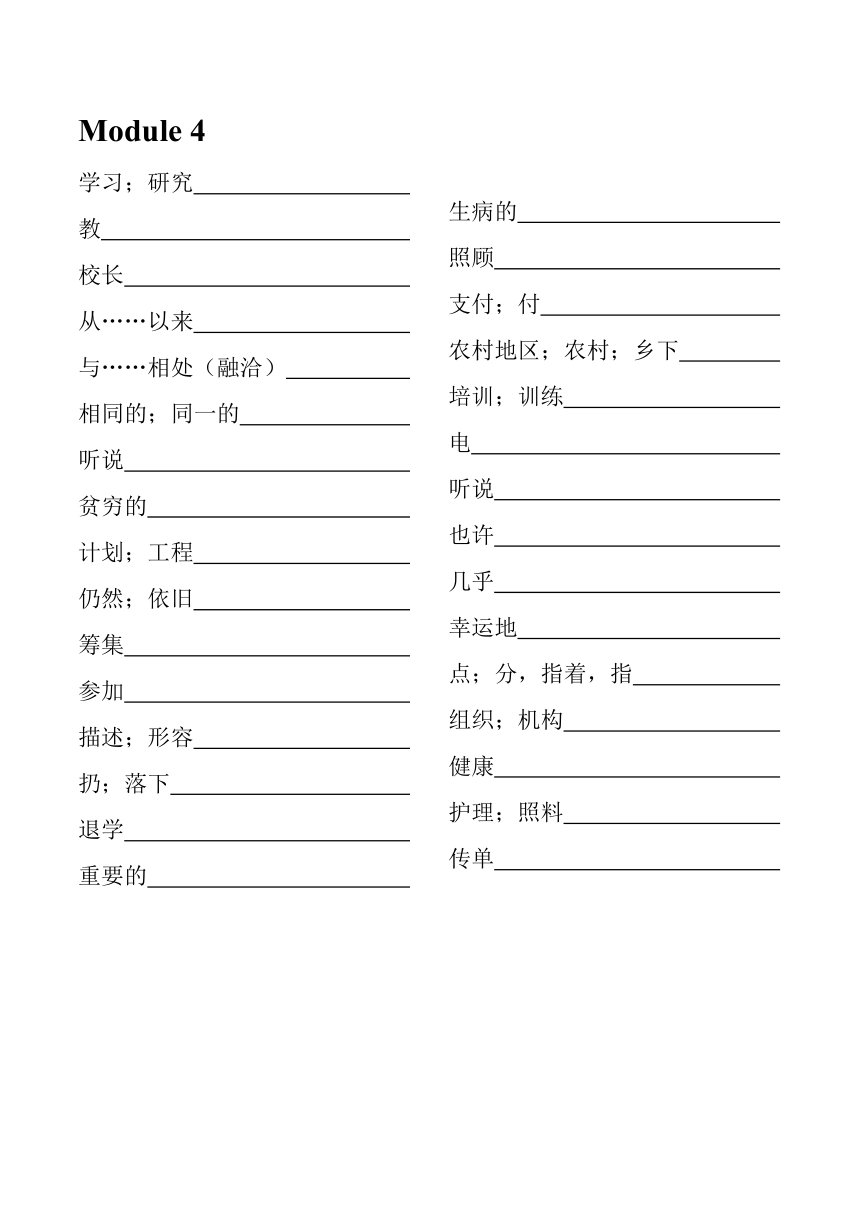 Module 4
学习；研究
教
校长
从……以来
与……相处（融洽）
相同的；同一的
听说
贫穷的
计划；工程
仍然；依旧
筹集
参加
描述；形容
扔；落下
退学
重要的
生病的
照顾
支付；付
农村地区；农村；乡下
培训；训练
电
听说
也许
几乎
幸运地
点；分，指着，指
组织；机构
健康
护理；照料
传单